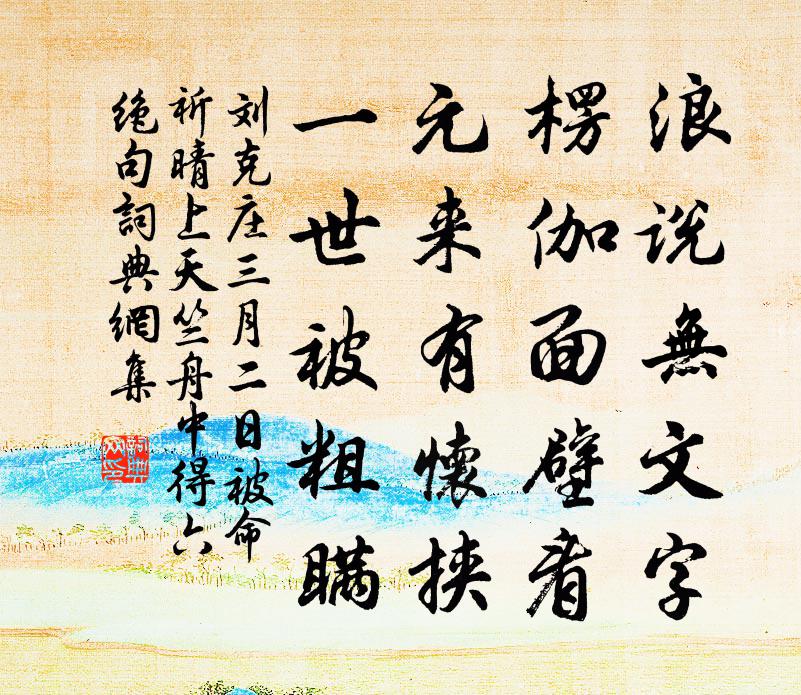 浪说無文字
楞伽面壁看
元来有懷挾
一世被粗瞞
刘克庄三月二日被命
祈晴上天竺舟中得六
绝句詞典網集